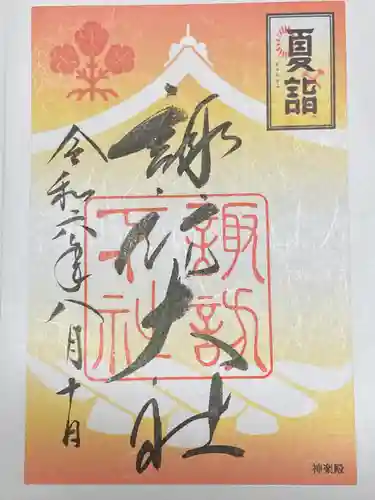 夏詣
諏訪大社
諏訪大社
令和六年八月十日
神楽殿